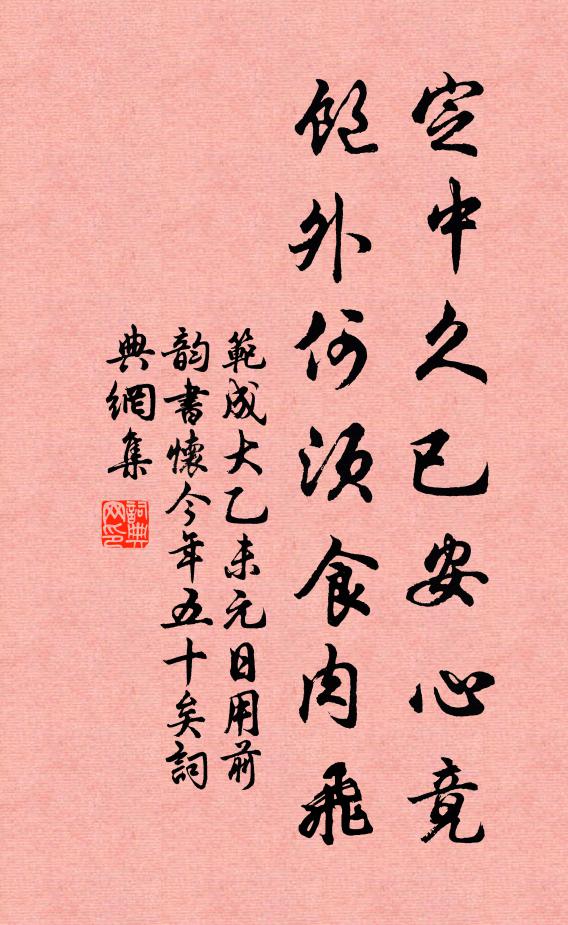 定中久已安心竟
飽外何須食肉飛
範成大乙未元日用前
韵書懷今年五十矣詞
典網集
詞典
网印